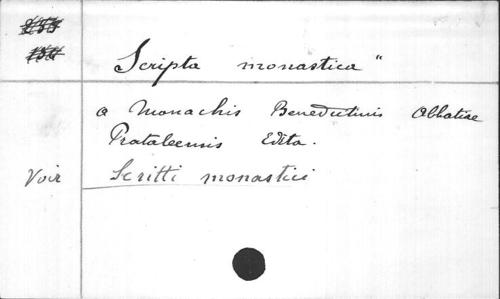 Scripta monastica"
a Monachis Benedictinis Abbatiae
Prataleensis Edita.
Voir Scritti monastici